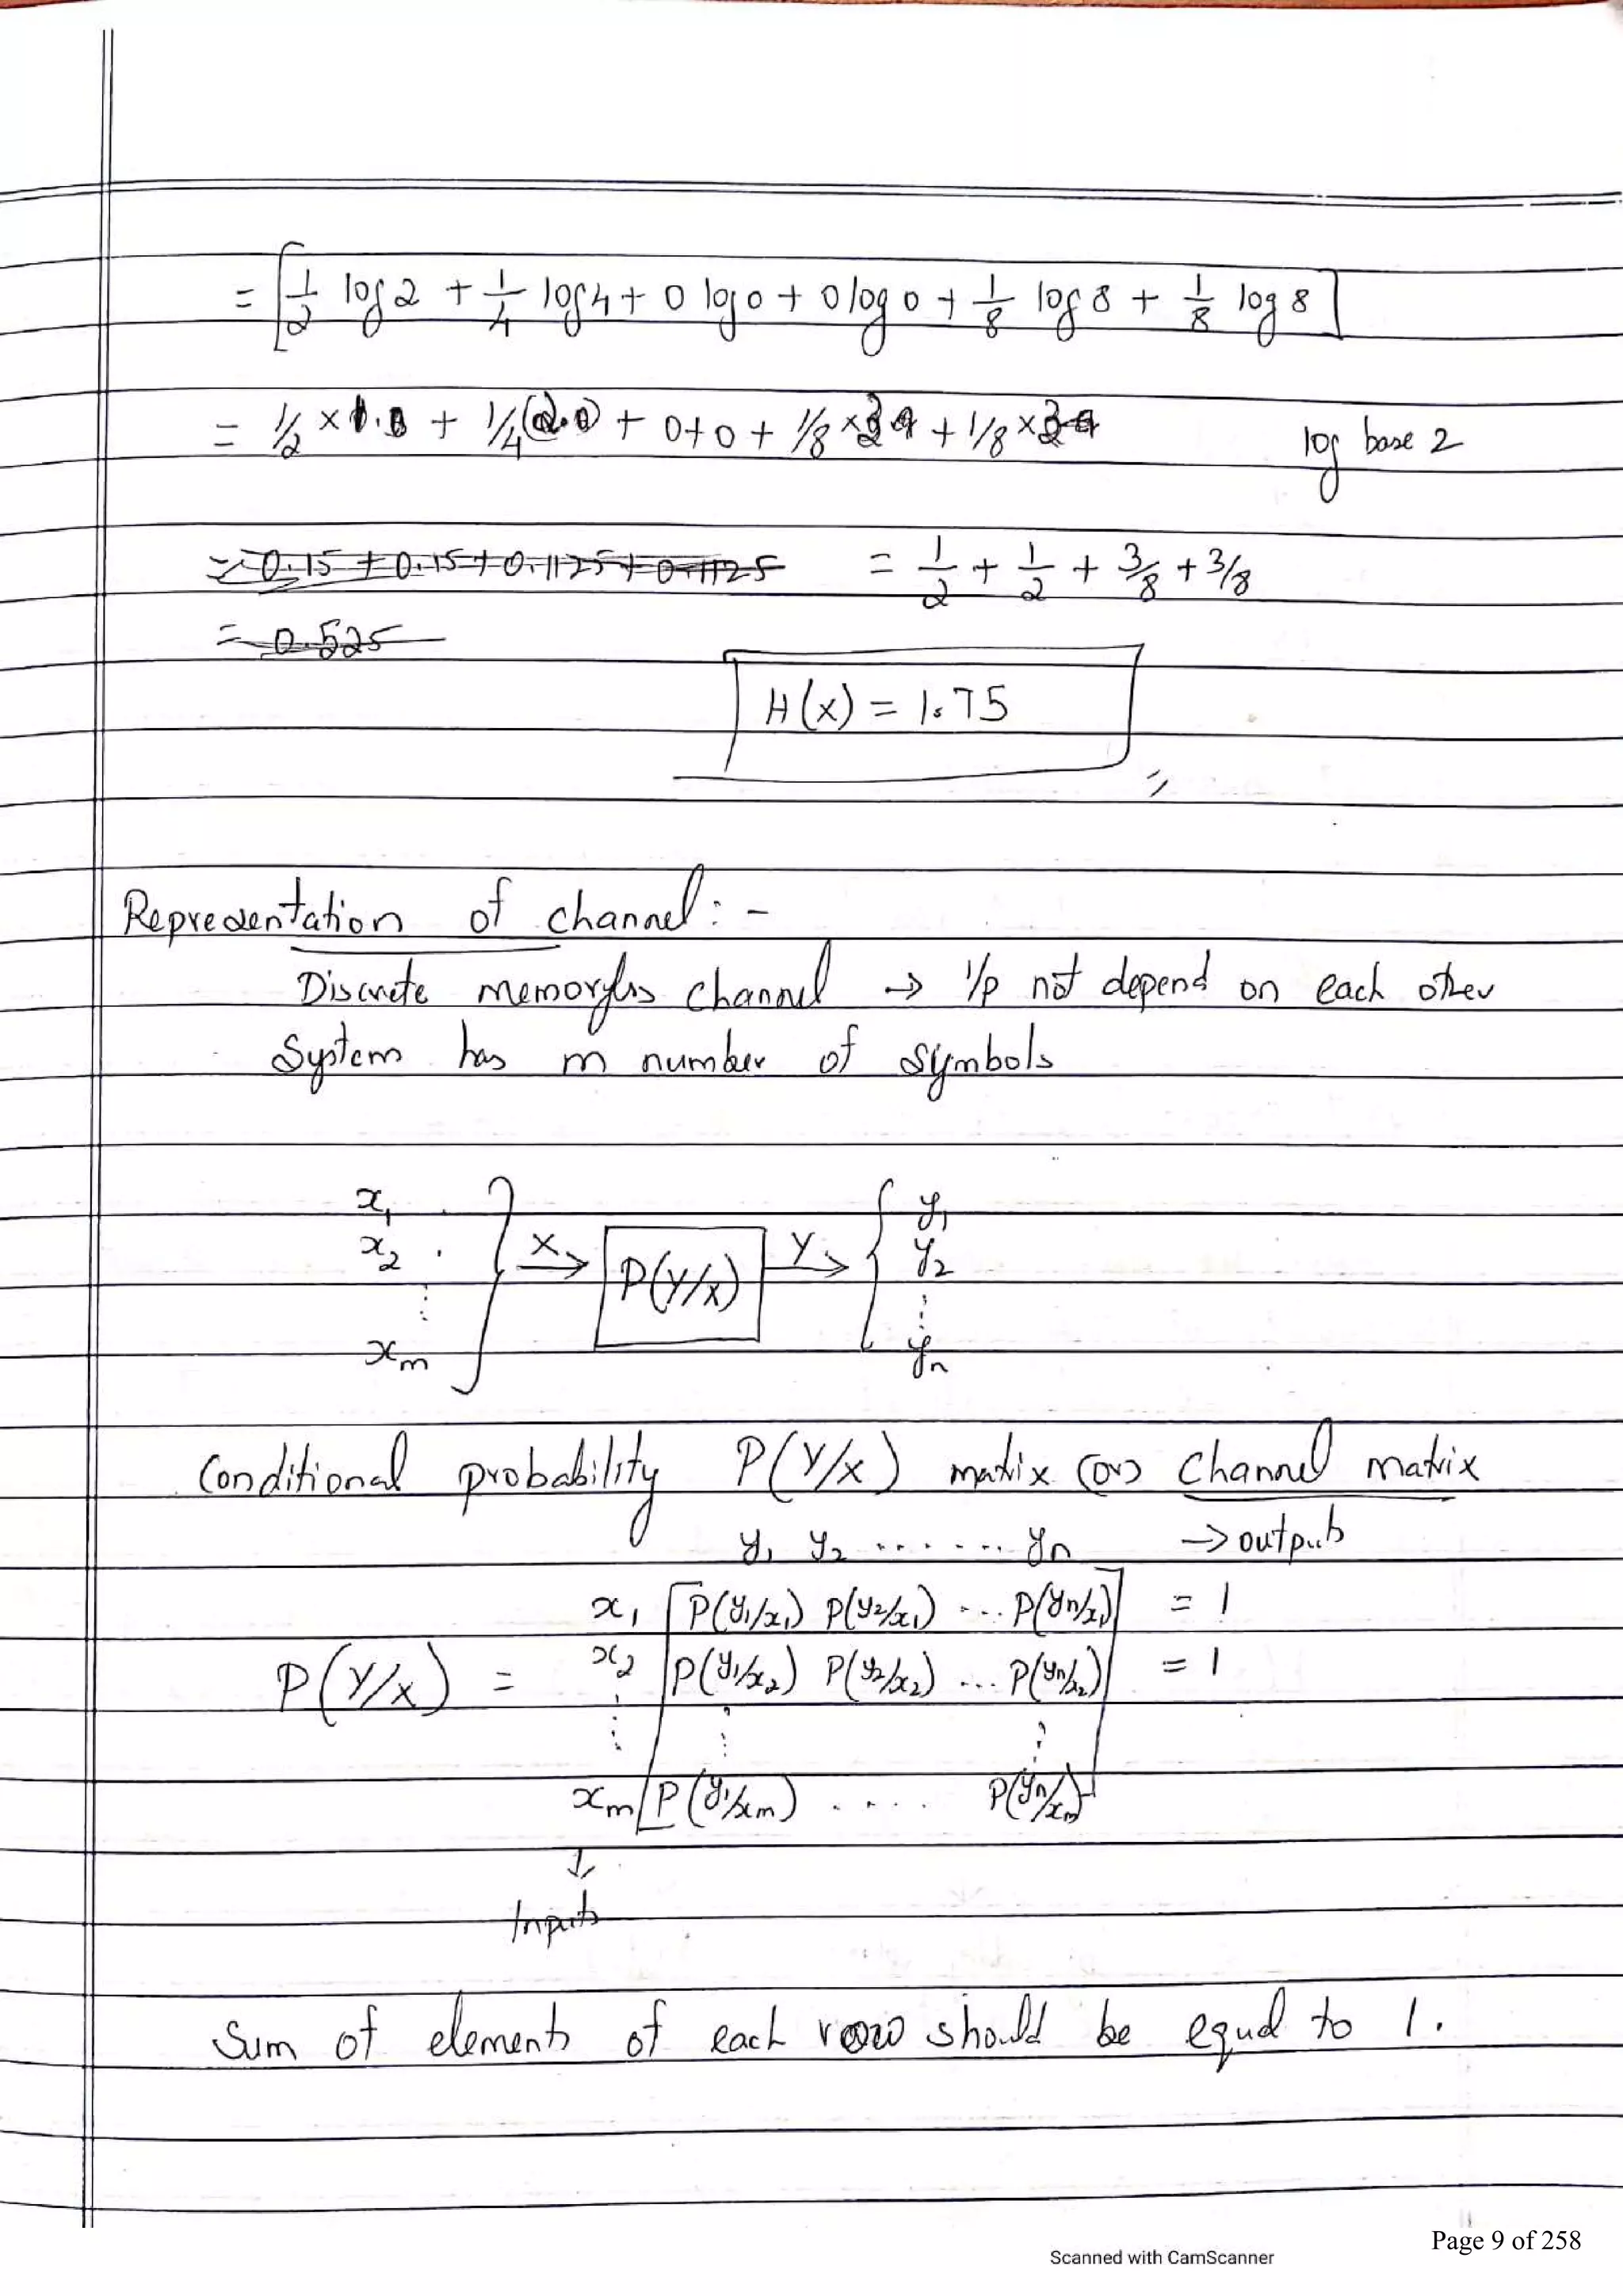 = [1/2 log 2 + 1/4 log 4 + 0 log 0 + 0 log 0 + 1/8 log 8 + 1/8 log 8]
= 1/2 × 1.0 + 1/4 (2.0) + 0 + 0 + 1/8 × 3 + 1/8 × 3 log base 2
= 0.15 + 0.15 + 0.1125 + 0.1125 = 1/2 + 1/2 + 3/8 + 3/8
= 0.525
H(x) = 1.75
Representation of channel : -
Discrete memoryless channel → I/p not depend on each other
System has m number of symbols
x1 y1
x2 X P(Y/X) Y y2
⋮ ⋮
xm yn
Conditional probability P(Y/X) matrix (or) channel matrix
y1 y2 ........ yn → outputs
x1 P(y1/x1) P(y2/x1) .... P(yn/x1) = 1
P(Y/X) = x2 P(y1/x2) P(y2/x2) ... P(yn/x2) = 1
⋮ ⋮ ⋮
xm P(y1/xm) ..... P(yn/xm)
↓
Inputs
Sum of elements of each row should be equal to 1.
Page 9 of 258
Scanned with CamScanner